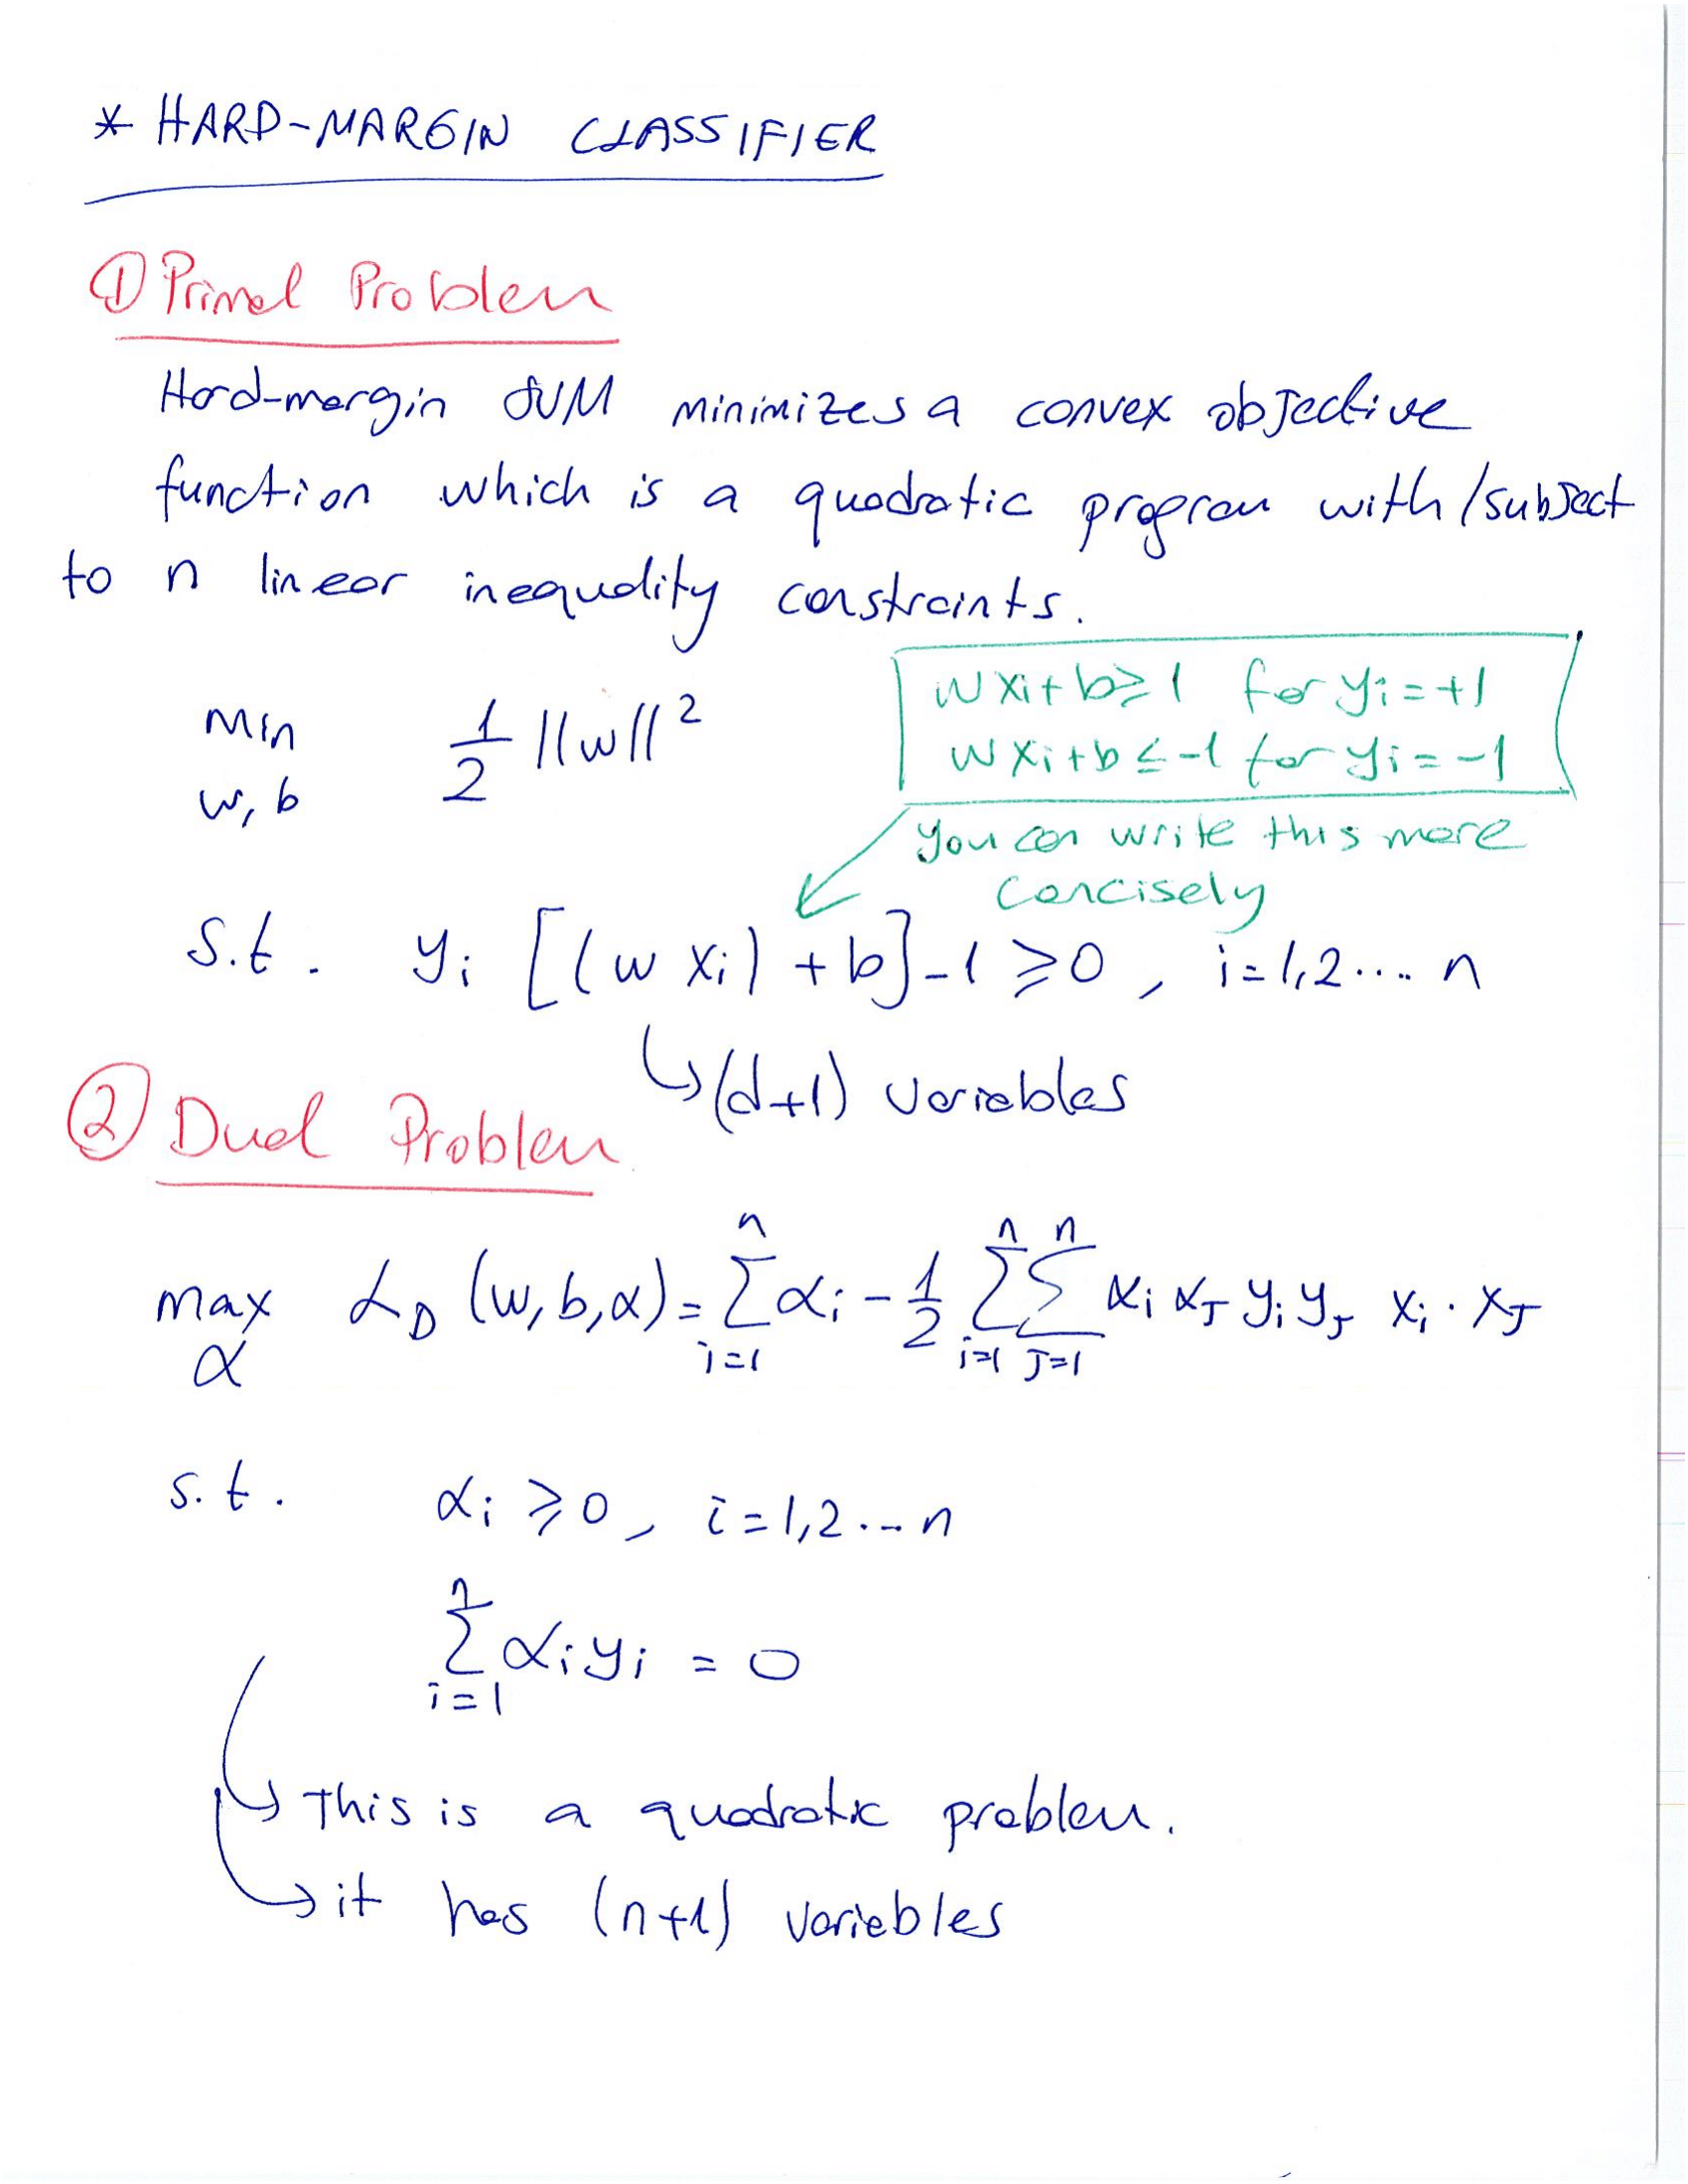 * HARD-MARGIN CLASSIFIER
① Primal Problem
Hard-margin SVM minimizes a convex objective
function which is a quadratic program with/subject
to n linear inequality constraints.
min w,b 1/2 ||w||²
w xi + b ≥ 1 for yi = +1
w xi + b ≤ -1 for yi = -1
you can write this more
concisely
s.t. yi [(w xi) + b] - 1 ≥ 0, i = 1,2.... n
↳ (d+1) variables
② Dual Problem
max α L_D (w,b,α) = Σ_{i=1}^{n} αi - 1/2 Σ_{i=1}^{n} Σ_{J=1}^{n} αi αJ yi yJ xi · xJ
s.t. αi ≥ 0, i = 1,2... n
Σ_{i=1}^{n} αi yi = 0
↳ This is a quadratic problem.
↳ it has (n+1) variables